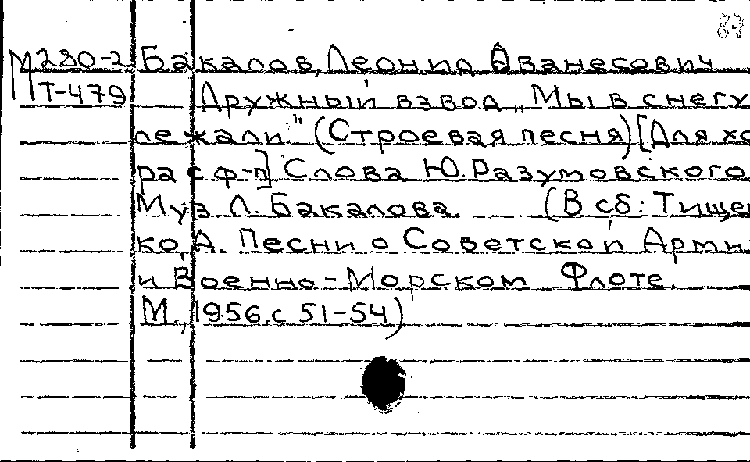 М280-2 Бакалов, Леонид Ованесович
Т-479 Дружный взвод „Мы в снегу
лежали" (Строевая песня) [Для хо
ра с ф-п] Слова Ю. Разумовского
Муз Л. Бакалова. (В сб: Тищен
ко, А. Песни о Советской Арми
и Военно-Морском Флоте.
М., 1956. с 51-54)